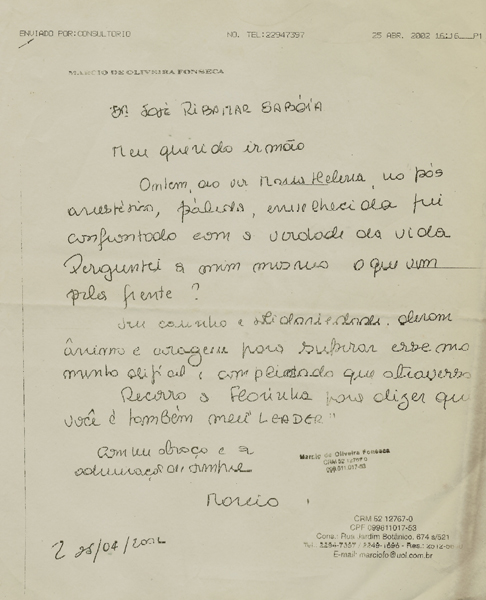 ENVIADO POR:CONSULTORIO NO. TEL:22947397 25 ABR. 2002 16:16 P1
MARCIO DE OLIVEIRA FONSECA
Dr. José RIBAMAR SABÓIA
Meu querido irmão
Ontem, ao ver Maria Helena, no pós
anestésico, pálida, envelhecida fui
confrontado com a verdade da vida
Perguntei a mim mesmo o que vem
pela frente?
Seu carinho e solidariedade deram
ânimo e coragem para superar esse mo
mento difícil e complicado que atravesso
Recorro a Florinha para dizer que
você é também meu "LEADER"
Com um abraço e a
admiração de sempre
Marcio
Marcio de Oliveira Fonseca
CRM 52 12767 0
099.811.017-53
25/04/2002
CRM 52 12767-0
CPF 099811017-53
Cons.: Rua Jardim Botânico, 674 s/521
Tel.: 2294-7397
E-mail: marciofo@uol.com.br